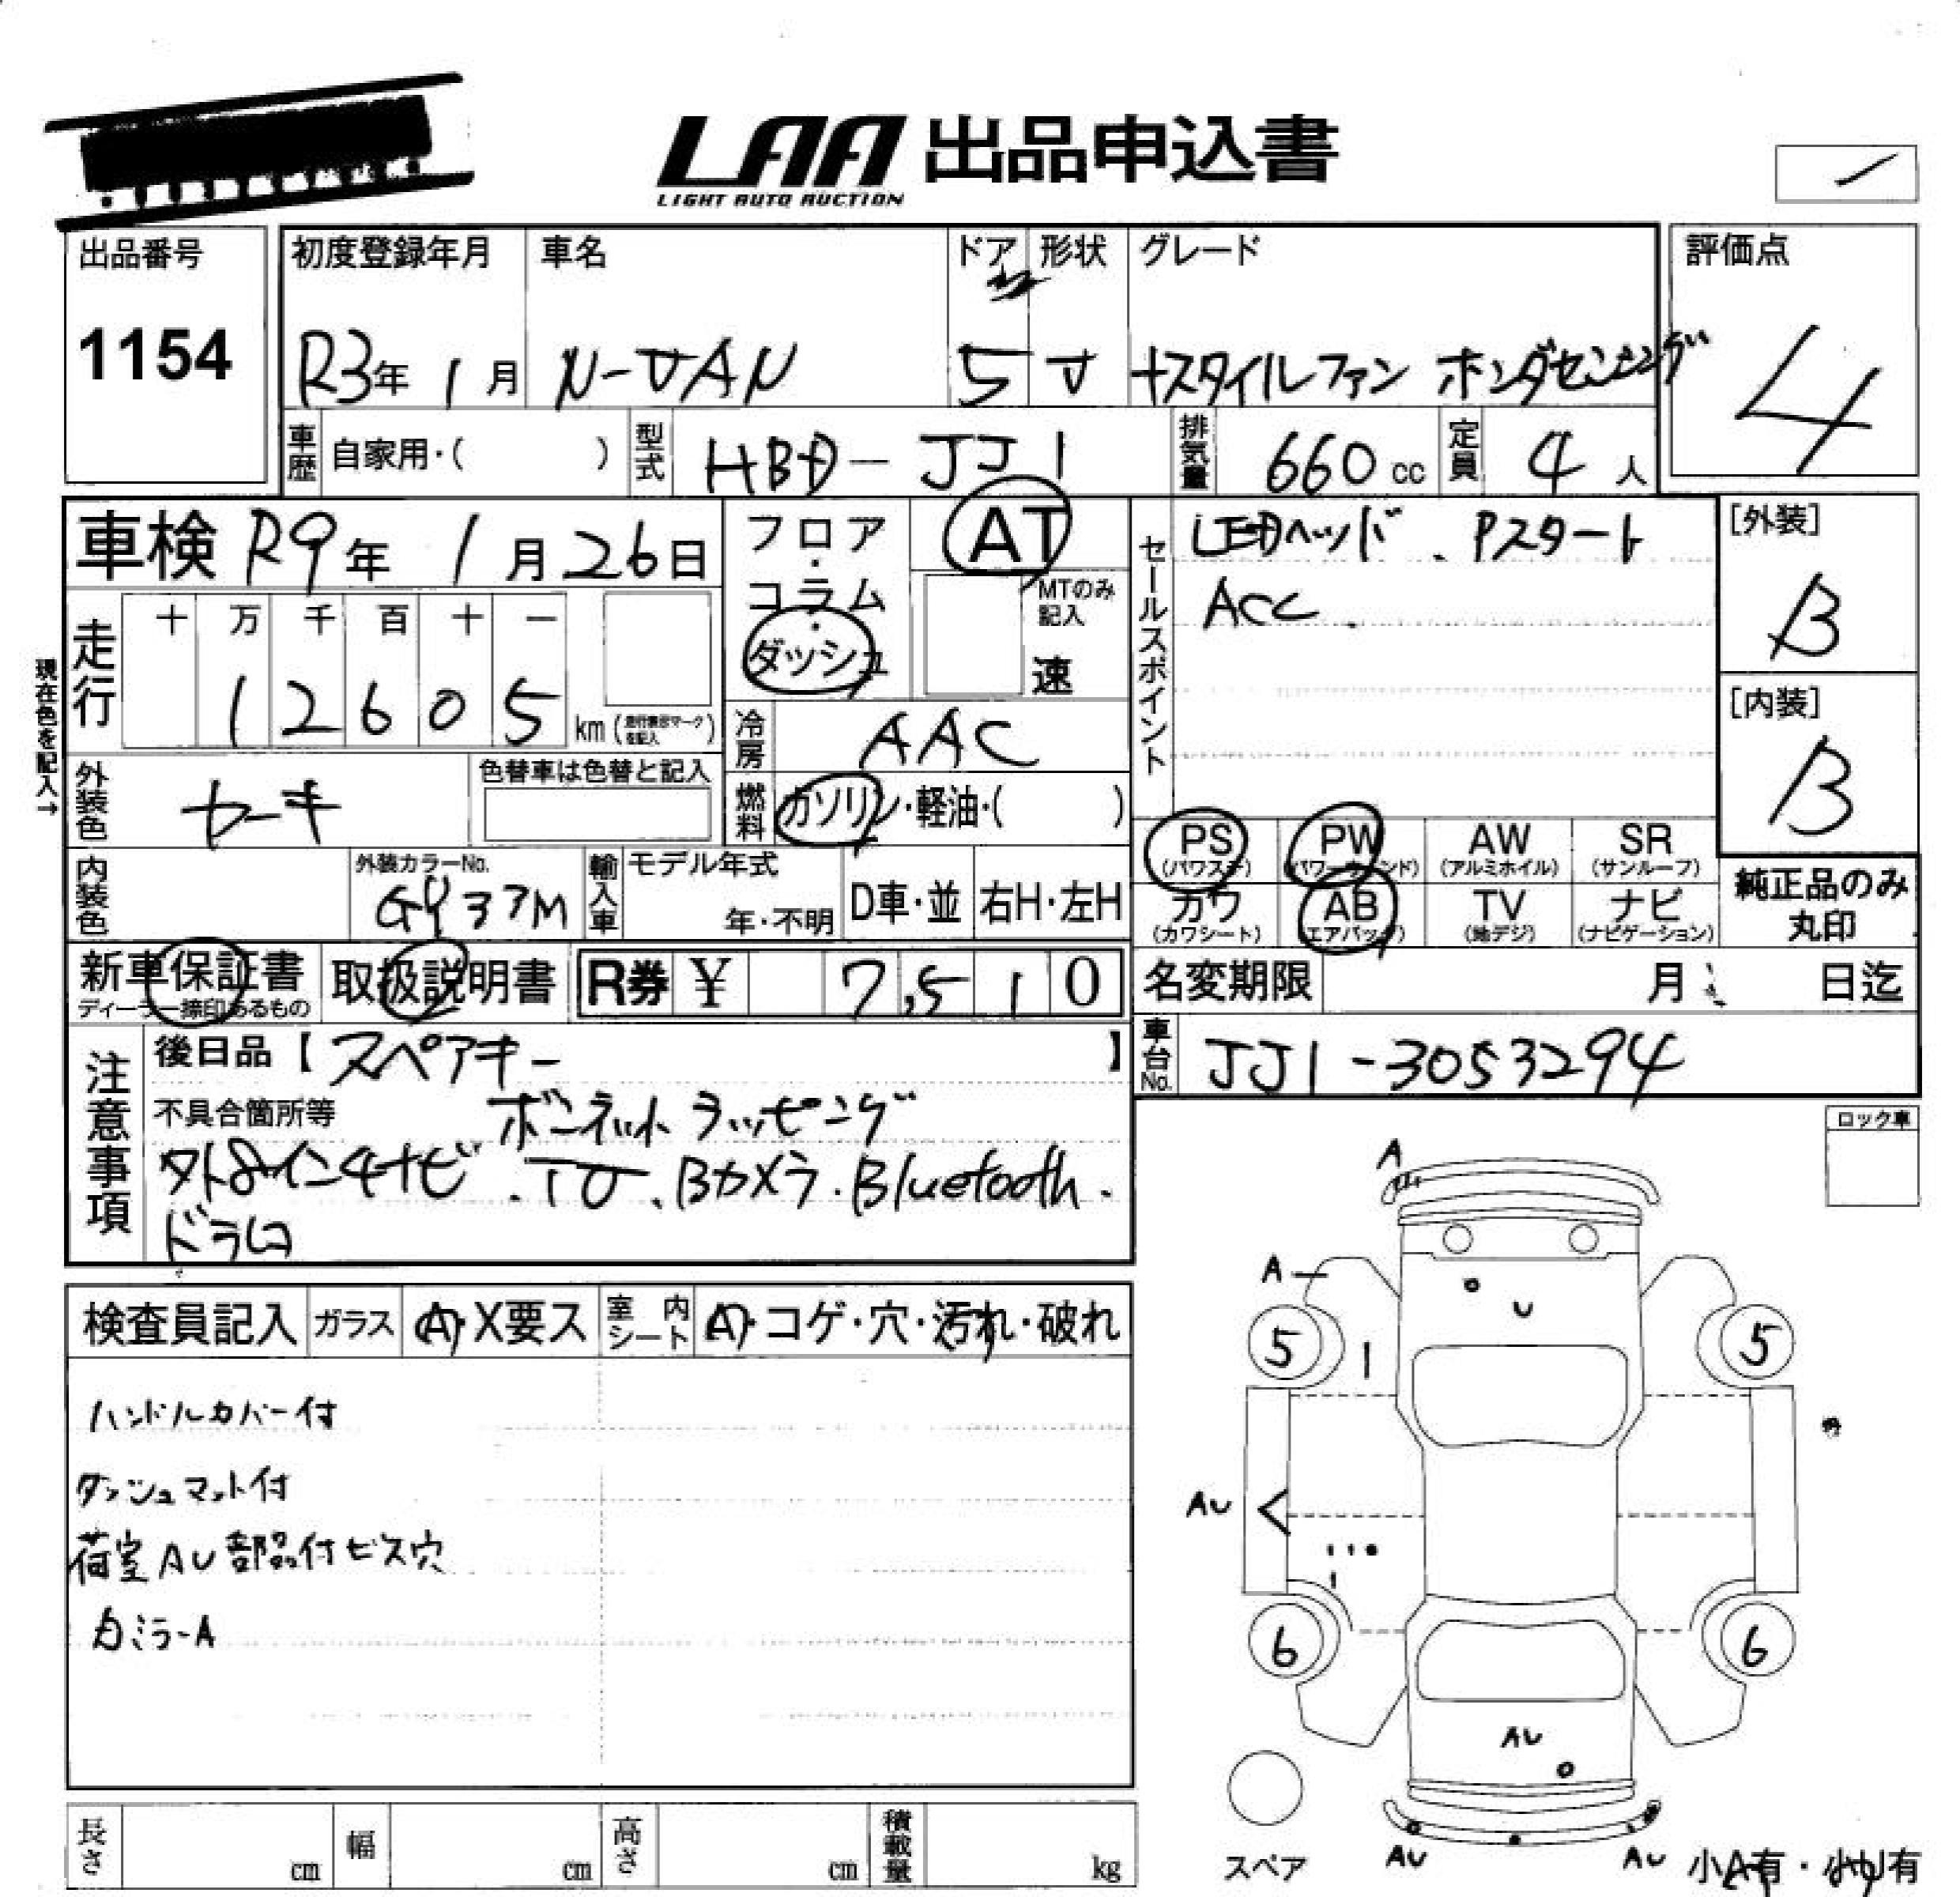 LAA 出品申込書
LIGHT AUTO AUCTION
出品番号 1154
初度登録年月 R3年 1月
車名 N-VAN
ドア 5
形状 V
グレード +スタイルファン ホンダセンシング
評価点 4
車歴 自家用・( )
型式 HBD-JJ1
排気量 660 cc
定員 4 人
車検 R9年 1月26日
フロア・コラム・ダッシュ
AT
MTのみ記入
速
セールスポイント LEDヘッド、Pスタート
ACC
[外装] B
[内装] B
現在色を記入→
走行 十 万 千 百 十 一
12605 km (走行表示マークを記入)
冷房 AAC
外装色 カーキ
色替車は色替と記入
燃料 ガソリン・軽油・( )
PS (パワステ) PW (パワーウィンド) AW (アルミホイル) SR (サンルーフ)
カワ (カワシート) AB (エアバッグ) TV (地デジ) ナビ (ナビゲーション)
純正品のみ丸印
内装色
外装カラーNo. GY37M
輸入車 モデル年式 年・不明
D車・並 右H・左H
新車保証書 ディーラー捺印あるもの
取扱説明書
R券 ¥ 7,510
名変期限 月 日迄
車台No. JJ1-3053294
注意事項
後日品【スペアキー】
不具合箇所等 ボンネットラッピング
外8インチナビ.TV.Bカメラ.Bluetooth.
ドラレコ
ロック車
検査員記入 ガラス A・X要ス 室内シート A・コゲ・穴・汚れ・破れ
ハンドルカバー付
ダッシュマット付
荷室AU部品付ビス穴
カミラーA
A
A
U
5
5
AU
6
6
AU
スペア
AU
AU
小A有・小U有
長さ cm 幅 cm 高さ cm 積載量 kg